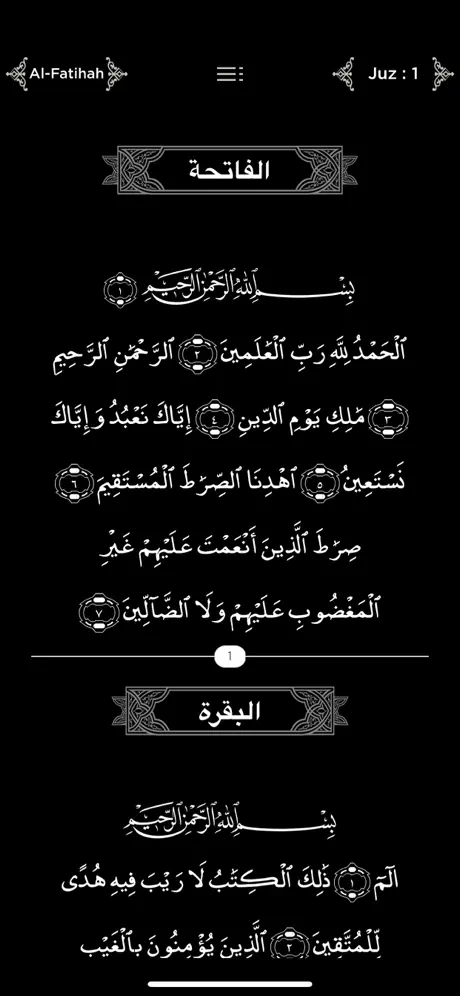 Al-Fatihah
Juz : 1
الفاتحة
بِسْمِ ٱللَّهِ ٱلرَّحْمَٰنِ ٱلرَّحِيمِ ١
ٱلْحَمْدُ لِلَّهِ رَبِّ ٱلْعَٰلَمِينَ ٢ ٱلرَّحْمَٰنِ ٱلرَّحِيمِ
٣ مَٰلِكِ يَوْمِ ٱلدِّينِ ٤ إِيَّاكَ نَعْبُدُ وَإِيَّاكَ
نَسْتَعِينُ ٥ ٱهْدِنَا ٱلصِّرَٰطَ ٱلْمُسْتَقِيمَ ٦
صِرَٰطَ ٱلَّذِينَ أَنْعَمْتَ عَلَيْهِمْ غَيْرِ
ٱلْمَغْضُوبِ عَلَيْهِمْ وَلَا ٱلضَّآلِّينَ ٧
1
البقرة
بِسْمِ ٱللَّهِ ٱلرَّحْمَٰنِ ٱلرَّحِيمِ
الٓمٓ ١ ذَٰلِكَ ٱلْكِتَٰبُ لَا رَيْبَ فِيهِ هُدًى
لِّلْمُتَّقِينَ ٢ ٱلَّذِينَ يُؤْمِنُونَ بِٱلْغَيْبِ